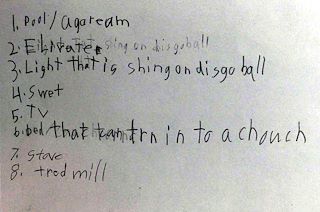 1. Pool/agaream
2. Elavater
3. Light that is shing on disgo ball
4. swet
5. TV
6. bed that can trn in to a chouch
7. stove
8. trod mill